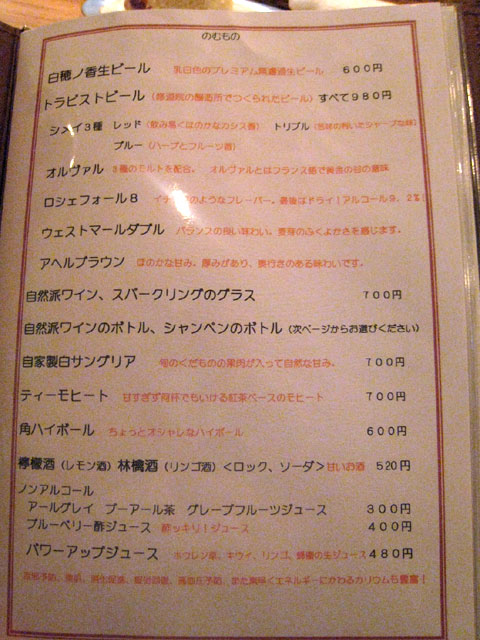 のむもの
白穂ノ香生ビール 乳白色のプレミアム無濾過生ビール 600円
トラピストビール (修道院の醸造所でつくられたビール) すべて980円
シメイ3種 レッド (飲み易くほのかなカシス香) トリプル (苦味の利いたシャープな味)
ブルー (ハーブとフルーツ香)
オルヴァル 3種のモルトを配合。 オルヴァルとはフランス語で黄金の谷の意味
ロシェフォール8 のようなフレーバー。最後はドライ!アルコール9.2%!
ウェストマールダブル バランスの良い味わい。麦芽のふくよかさを感じます。
アヘルブラウン ほのかな甘み。厚みがあり、奥行きのある味わいです。
自然派ワイン、スパークリングのグラス 700円
自然派ワインのボトル、シャンペンのボトル (次ページからお選びください)
自家製白サングリア 旬のくだものの果肉が入って自然な甘み。 700円
ティーモヒート 甘すぎず何杯でもいける紅茶ベースのモヒート 700円
角ハイボール ちょっとオシャレなハイボール 600円
檸檬酒 (レモン酒) 林檎酒 (リンゴ酒) <ロック、ソーダ> 甘いお酒 520円
ノンアルコール
アールグレイ プーアール茶 グレープフルーツジュース 300円
ブルーベリー酢ジュース 酢ッキリ!ジュース 400円
パワーアップジュース ホウレン草、キウイ、リンゴ、檸檬の生ジュース 480円
消化促進、疲労回復、高血圧予防、また美味くエネルギーにかわるカリウムも豊富!